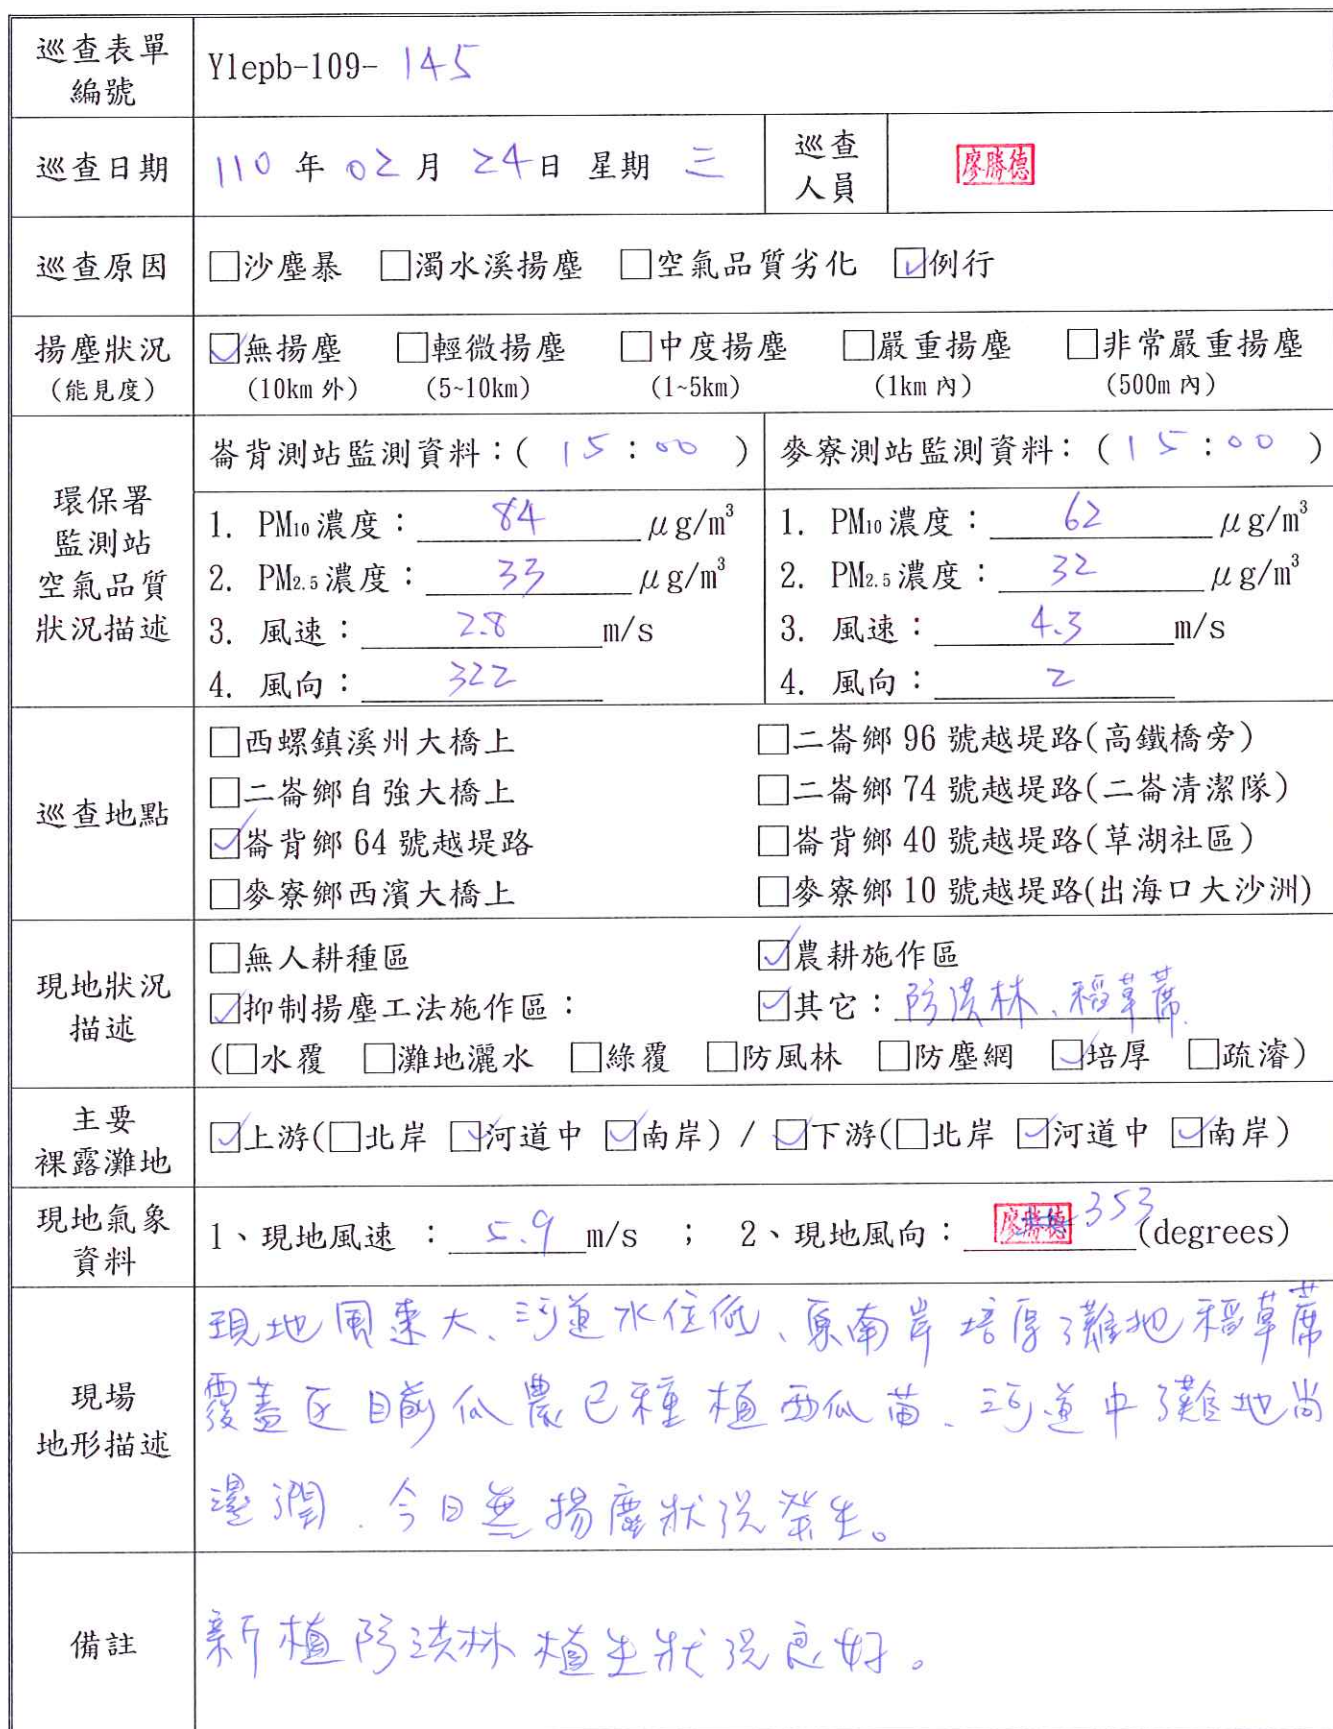 巡查表單
編號
Ylepb-109- 145
巡查日期
110 年 02 月 24 日 星期 三
巡查
人員
廖勝德
巡查原因
□沙塵暴 □濁水溪揚塵 □空氣品質劣化 ☑例行
揚塵狀況
(能見度)
☑無揚塵 □輕微揚塵 □中度揚塵 □嚴重揚塵 □非常嚴重揚塵
(10km 外) (5~10km) (1~5km) (1km 內) (500m 內)
環保署
監測站
空氣品質
狀況描述
崙背測站監測資料：( 15：00 )
1. PM10濃度： 84 μg/m³
2. PM2.5濃度： 33 μg/m³
3. 風速： 2.8 m/s
4. 風向： 322
麥寮測站監測資料：( 15：00 )
1. PM10濃度： 62 μg/m³
2. PM2.5濃度： 32 μg/m³
3. 風速： 4.3 m/s
4. 風向： 2
巡查地點
□西螺鎮溪州大橋上 □二崙鄉 96 號越堤路(高鐵橋旁)
□二崙鄉自強大橋上 □二崙鄉 74 號越堤路(二崙清潔隊)
☑崙背鄉 64 號越堤路 □崙背鄉 40 號越堤路(草湖社區)
□麥寮鄉西濱大橋上 □麥寮鄉 10 號越堤路(出海口大沙洲)
現地狀況
描述
□無人耕種區 ☑農耕施作區
☑抑制揚塵工法施作區： ☑其它：防洪林、稻草蓆
(□水覆 □灘地灑水 □綠覆 □防風林 □防塵網 ☑培厚 □疏濬)
主要
裸露灘地
☑上游(□北岸 ☑河道中 ☑南岸) / ☑下游(□北岸 ☑河道中 ☑南岸)
現地氣象
資料
1、現地風速 ： 5.9 m/s ； 2、現地風向： 廖勝德 353 (degrees)
現場
地形描述
現地風速大、河道水位低、東南岸培厚灘地稻草蓆
覆蓋區目前瓜農已種植西瓜苗、河道中灘地尚
濕潤、今日無揚塵狀況發生。
備註
新植防洪林植生狀況良好。